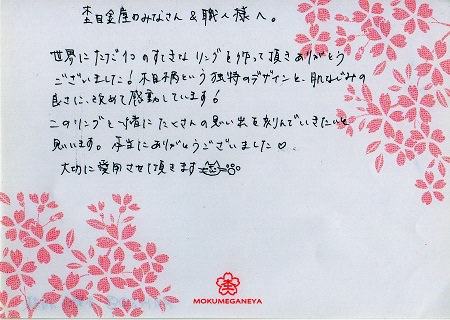 杢目金屋のみなさん & 職人様へ。
世界にただ1つのすてきなリングを作って頂きありがとう
ございました！木目柄という独特のデザインと、肌なじみの
良さに、改めて感動しています！
このリングと一緒にたくさんの思い出を刻んでいきたいと
思います。本当にありがとうございました♡
大切に愛用させて頂きます
MOKUMEGANEYA